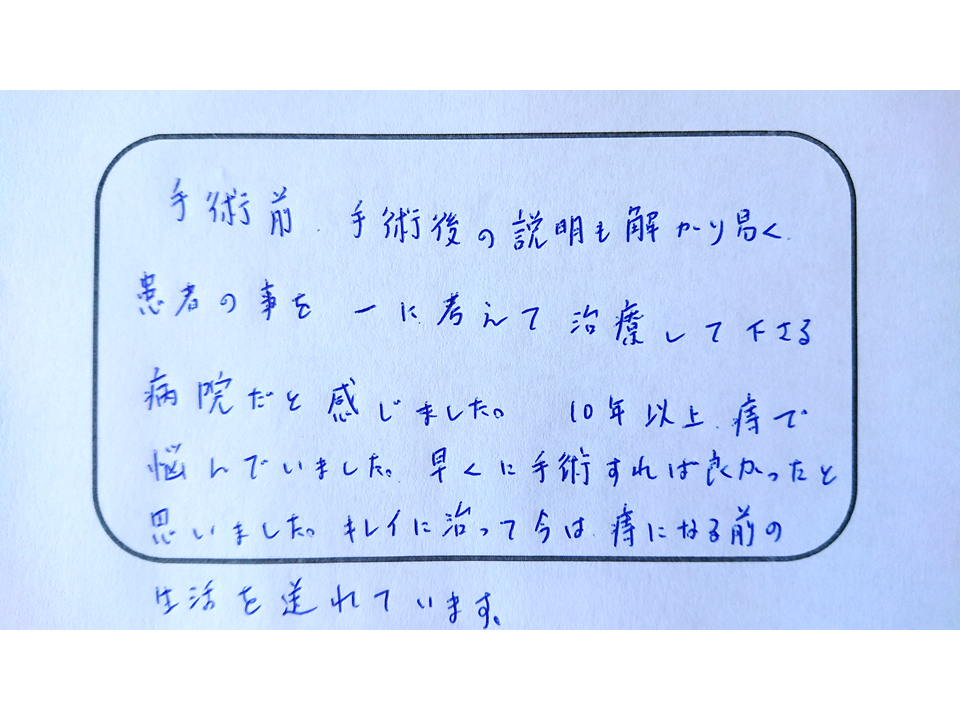 手術前、手術後の説明も解かり易く、
患者の事を一に考えて治療して下さる
病院だと感じました。 10年以上、痔で
悩んでいました。早くに手術すれば良かったと
思いました。キレイに治って今は、痔になる前の
生活を送れています。